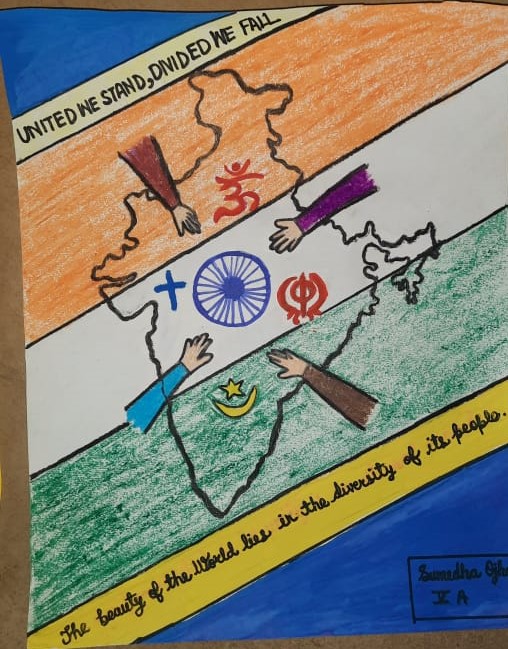 UNITED WE STAND, DIVIDED WE FALL
ॐ
The beauty of the World lies in the diversity of its people.
Sumedha
V A